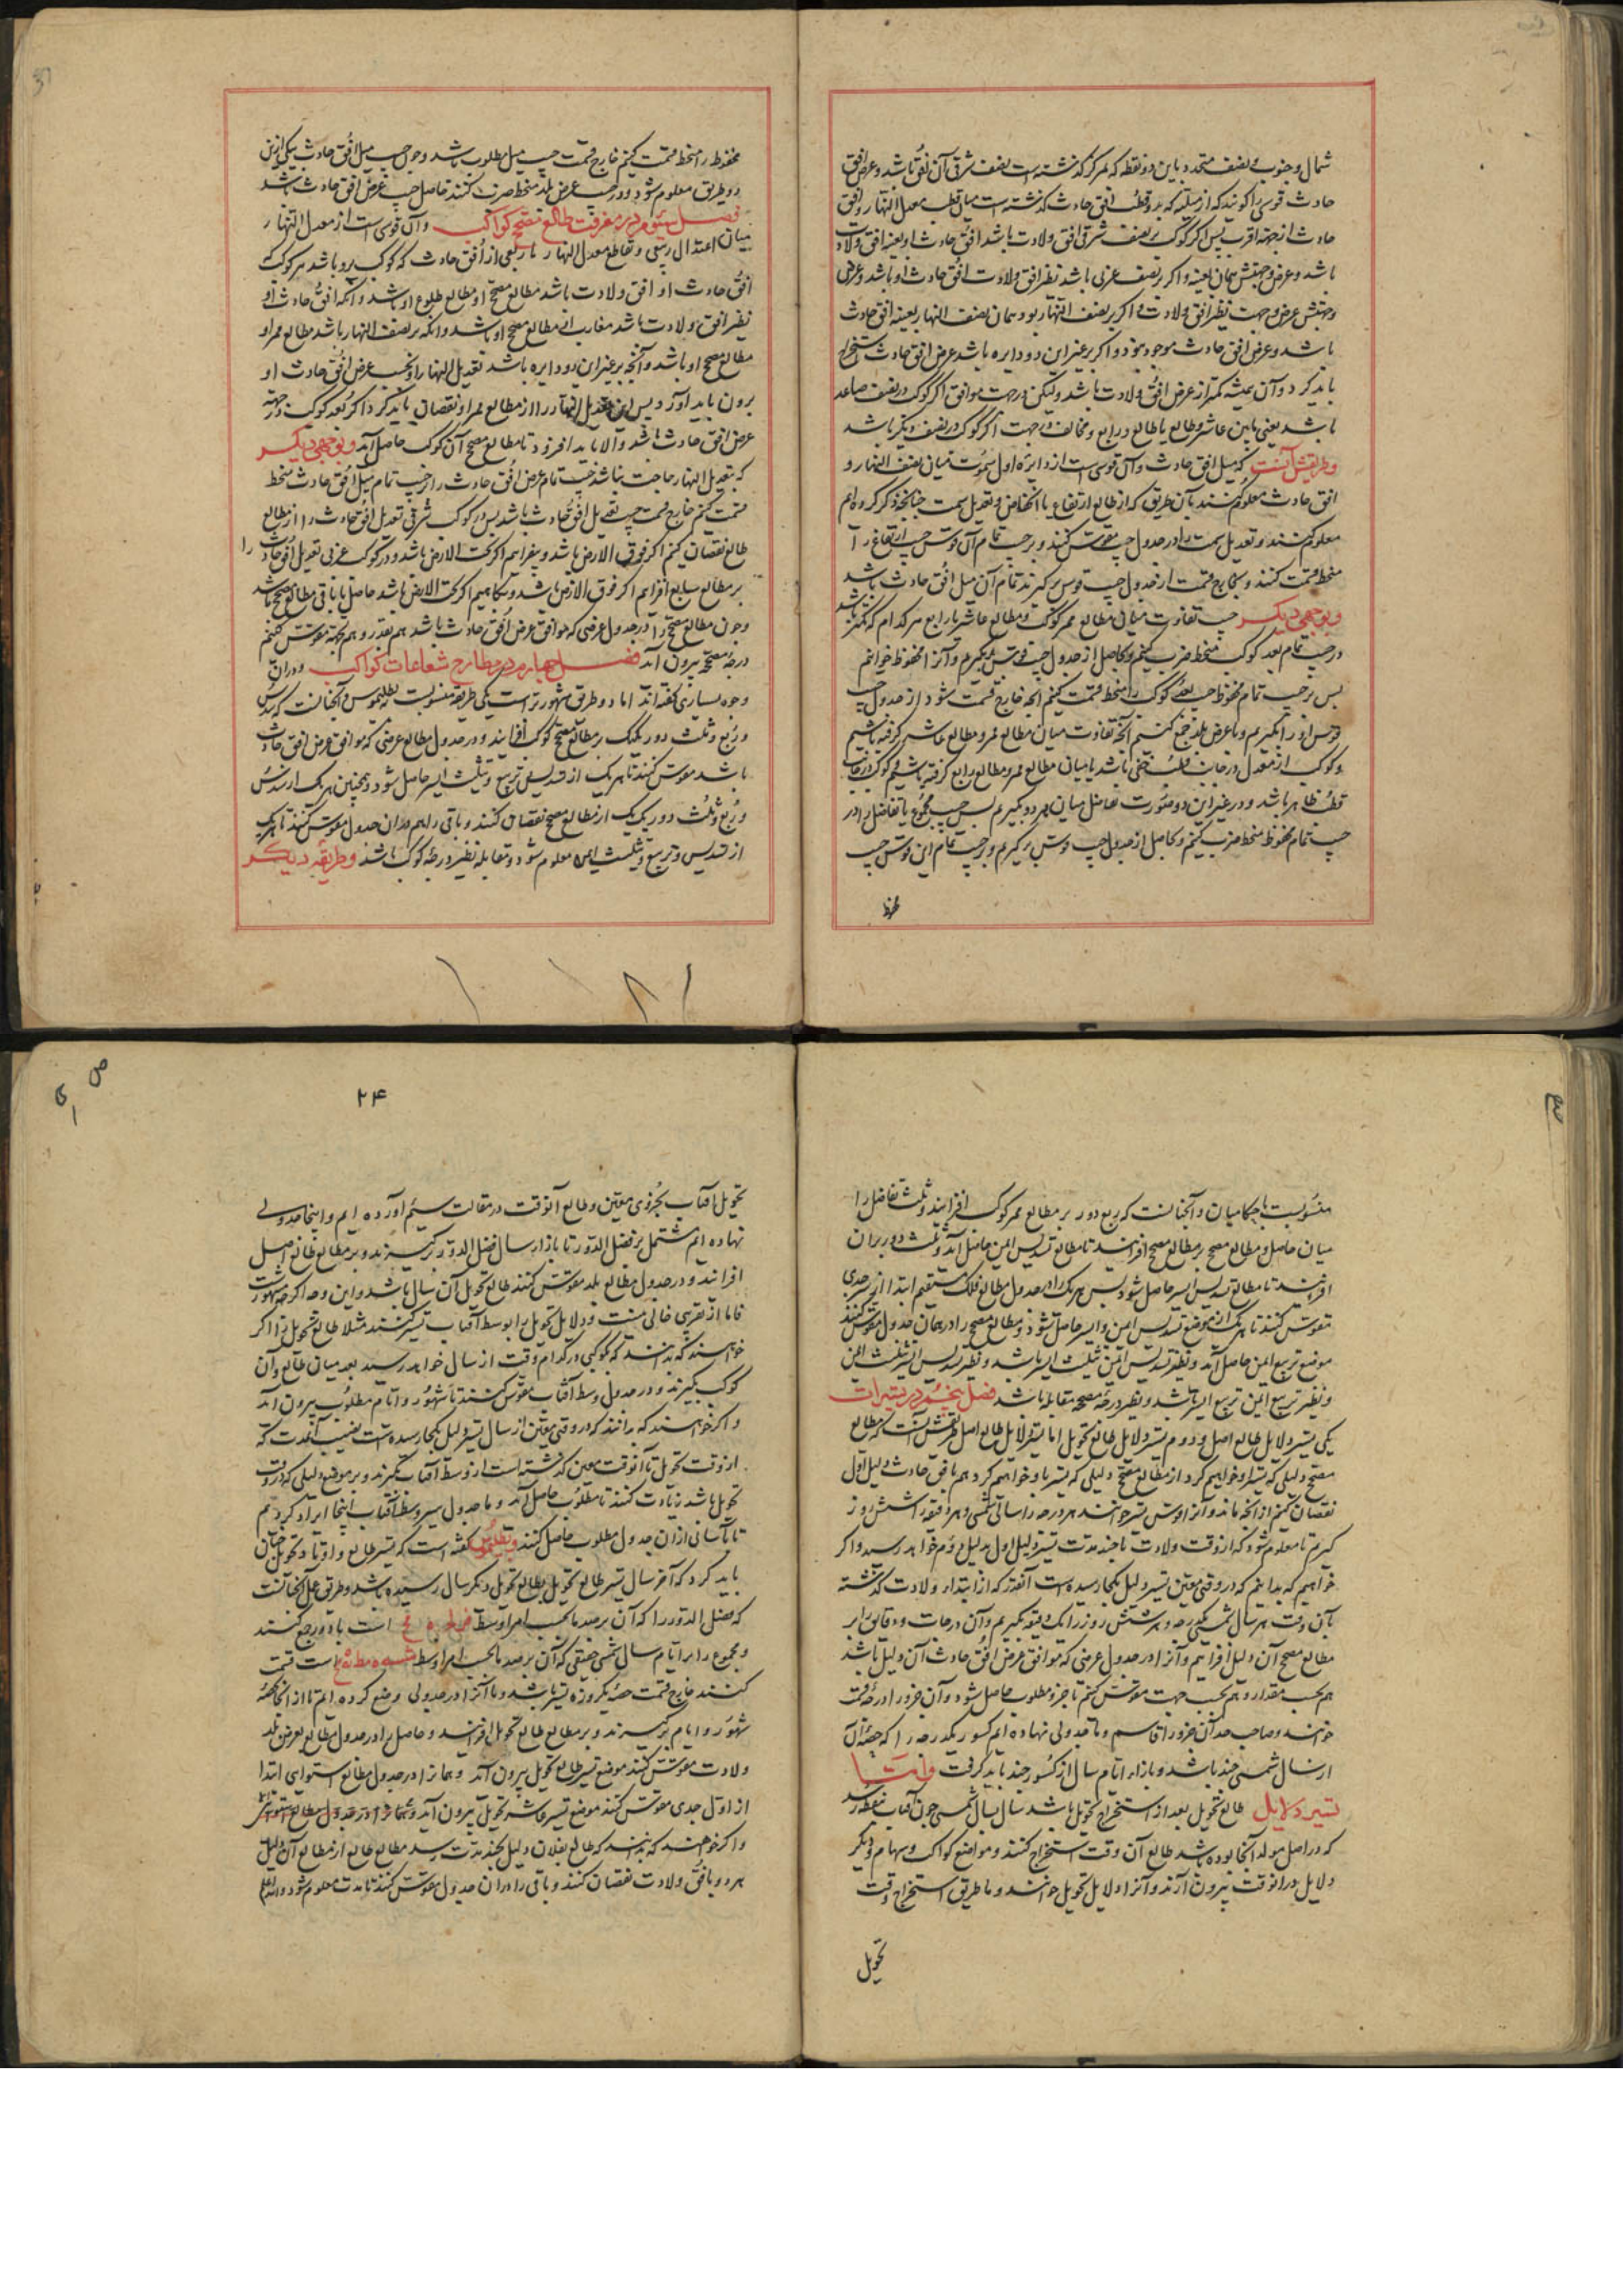 شمال و جنوب و نصف متحدد باین دو نقطه که بمرکز کذشته است نصف شرقی آن افق باشد و عرض افق
حادث قوسی را کویند که از میلیه که بدو قطب افق حادث کذشته است میان قطب معدل النهار و افق
حادث از جهة اقرب پس اکر کوکب بر نصف شرقی افق ولادت باشد افق حادث او بعینه افق ولادت
باشد و عرض و جهتش همان بعینه و اکر بر نصف غربی باشد نظیر افق ولادت افق حادث او باشد و عرض
و جهتش عرض و جهت نظیر افق ولادت و اکر بر نصف النهار بود همان نصف النهار بعینه افق حادث
باشد و عرض افق حادث موجود نبود و اکر بر غیر این دو دایره باشد عرض افق حادث استخراج
باید کرد و آن همیشه کمتر از عرض افق ولادت باشد ولیکن در جهت موافق اکر کوکب در نصف صاعد
باشد یعنی مابین عاشر و طالع یا طالع و رابع و مخالف در جهت اکر کوکب در نصف دیکر باشد
و طریقش آنست که میل افق حادث و آن قوسی است از دایره اول سموت میان نصف النهار و
افق حادث معلوم کنند بآن طریق که از طالع ارتفاع یا انخفاض و تعدیل سمت چنانچه ذکر کرده ایم
معلوم کنند و تعدیل سمت را در جدول جیب مقوس کنند و بر جیب تمام آن قوس جیب ارتفاع را
منحط قسمت کنند و بخارج قسمت از جدول جیب قوس برکیرند تمام آن میل افق حادث باشد
و بوجهی دیکر جیب تفاوت میان مطالع ممر کوکب و مطالع عاشر یا رابع هر کدام که کمتر باشد
در جیب تمام بعد کوکب منحط ضرب کنیم و حاصل از جدول جیب قوس بکیریم و آنرا محفوظ خوانیم
پس بر جیب تمام محفوظ جیب بعد کوکب را منحط قسمت کنیم آنچه خارج قسمت شود از جدول جیب
قوس او را بکیریم و با عرض بلد جمع کنیم آنچه تفاوت میان مطالع ممر و مطالع عاشر کرفته باشیم
و کوکب از معدل در جانب قطب خفی باشد یا میان مطالع ممر و مطالع رابع کرفته باشیم و کوکب در جانب
قطب ظاهر باشد و در غیر این دو صورت تفاضل میان هر دو بکیریم پس جیب مجموع یا تفاضل را در
جیب تمام محفوظ منحط ضرب کنیم و حاصل از جدول جیب قوس برکیریم و بر جیب تمام این قوس جیب
محفوظ را منحط قسمت کنیم خارج قسمت جیب میل مطلوب باشد و چون جیب میل افق حادث بیکی ازین
دو طریق معلوم شود در جیب عرض بلد منحط ضرب کنند حاصل جیب عرض افق حادث باشد
فصل سیوم در معرفت طالع مصحح کواکب و آن قوسی است از معدل النهار
میان اعتدال ربیعی و تقاطع معدل النهار با ربعی از افق حادث که کوکب برو باشد هر کوکب
افق حادث او افق ولادت باشد مطالع مصحح او مطالع طلوع او باشد و آنکه افق حادث او
نظیر افق ولادت باشد مغارب او مطالع مصحح او باشد و آنکه بر نصف النهار باشد مطالع ممر او
مطالع مصحح او باشد و آنچه بر غیر این دو دایره باشد تعدیل النهار او بحسب عرض افق حادث او
برون باید آورد پس این تعدیل النهار را از مطالع ممر او نقصان باید کرد اکر بعد کوکب در جهة
عرض افق حادث باشد و الا باید افزود تا مطالع مصحح آن کوکب حاصل آید و بوجهی دیکر
که بتعدیل النهار حاجت نباشد جیب تمام عرض افق حادث را بر جیب تمام میل افق حادث منحط
قسمت کنیم خارج قسمت جیب تعدیل افق حادث باشد پس در کوکب شرقی تعدیل افق حادث را از مطالع
طالع نقصان کنیم اکر فوق الارض باشد و بیفزائیم اکر تحت الارض باشد و در کوکب غربی تعدیل افق حادث را
بر مطالع سابع افزائیم اکر فوق الارض باشد و بکاهیم اکر تحت الارض باشد حاصل یا باقی مطالع مصحح باشد
و چون مطالع مصحح را در جدول عرضی که موافق عرض افق حادث باشد هم بقدر و هم بجهة مقوس کنیم
درجهٔ مصححه بیرون آید فصل چهارم در مطارح شعاعات کواکب و در آن
وجوه بسیاری کفته اند اما دو طریق مشهورتر است یکی طریقه منسوبست ببطلیموس و آنچنانست که سدس
و ربع و ثلث دور یکیک بر مطالع مصحح کوکب افزایند و در جدول مطالع عرضی که موافق عرض افق حادث
باشد مقوس کنند تا هر یک از تسدیس و تربیع و تثلیث ایسر حاصل شود و همچنین هر یک از سدس
و ربع و ثلث دور یک یک از مطالع مصحح نقصان کنند و باقی را هم در آن جدول مقوس کنند تا هر یک
از تسدیس و تربیع و تثلیث ایمن معلوم شود و مقابله نظیر درجهٔ کوکب باشد و طریقه دیکر
منسوبست باحکامیان و آنچنانست که ربع دور بر مطالع ممر کوکب افزایند و ثلث تفاضل را
میان حاصل و مطالع مصحح بر مطالع مصحح افزایند تا مطالع تسدیس ایمن حاصل آید و ثلث دور بر آن
افزایند تا مطالع تسدیس ایسر حاصل شود پس هر یک را در جدول مطالع فلک مستقیم ابتدا از سر جدی
مقوس کنند تا هر یک از موضع تسدیس ایمن و ایسر حاصل شود و مطالع مصحح را در همان جدول مقوس کنند
موضع تربیع ایمن حاصل آید و نظیر تسدیس ایمن تثلیث ایسر باشد و نظیر تسدیس ایسر تثلیث ایمن
و نظیر تربیع ایمن تربیع ایسر باشد و نظیر درجهٔ مصححه مقابله باشد فصل پنجم در تسییرات
یکی تسییر دلایل طالع اصل و دوم تسییر دلایل طالع تحویل اما تسییر دلایل طالع اصل طریقش آنست که مطالع
مصحح دلیلی که تسییر او خواهیم کرد از مطالع مصحح دلیلی که تسییر باو خواهیم کرد هم بافق حادث دلیل اول
نقصان کنیم از آنچه ماند و آنرا قوس تسییر خوانند هر درجه را سالی شمسی و هر دقیقه را شش روز
کیریم تا معلوم شود که از وقت ولادت تا چند مدت تسییر دلیل اول بدلیل دوم خواهد رسید و اکر
خواهیم که بدانیم که در وقتی معین تسییر دلیل بکجا رسیده است آنقدر که از ابتداء ولادت کذشته
بآن وقت هر سال شمسی یکدرجه و هر شش روز را یک دقیقه بکیریم و آن درجات و دقایق را بر
مطالع مصحح آن دلیل افزائیم و آنرا در جدول عرضی که موافق عرض افق حادث آن دلیل باشد
هم بحسب مقدار و هم بحسب جهت مقوس کنیم تا جزو مطلوب حاصل شود و آن جزو را درجهٔ قسمت
خوانند و صاحب حد آن جزو را قاسم و ما جدولی نهاده ایم کسور یکدرجه را که حصهٔ آن
از سال شمسی چند باشد و بازاء ایام سال از کسور چند باید کرفت و امّا
تسییر دلایل طالع تحویل بعد از استخراج تحویل باشد سال بسال شمسی چون آفتاب بنقطه رسد
که در اصل مولد آنجا بوده باشد طالع آن وقت استخراج کنند و مواضع کواکب و سهام و دیکر
دلایل در آنوقت بیرون آرند و آنرا دلایل تحویل خوانند و ما طریق استخراج وقت
تحویل
۲۴
تحویل آفتاب بجزوی معین و طالع آنوقت در مقالت سیم آورده ایم و اینجا جدولی
نهاده ایم مشتمل بر فضل الدور تا بازاء سال فضل الدور برکیرند و بر مطالع طالع اصل
افزایند و در جدول مطالع بلد مقوس کنند طالع تحویل آن سال باشد و این وجه اکرچه مشهورست
فاما از تقریبی خالی نیست و دلایل تحویل را بوسط آفتاب تسییر کنند مثلا طالع تحویل را اکر
خواهند که بدانند که بکوکبی در کدام وقت از سال خواهد رسید بعد میان طالع و آن
کوکب بکیرند و در جدول وسط آفتاب مقوس کنند تا شهور و ایام مطلوب بیرون آید
و اکر خواهند که بدانند که در وقتی معین از سال تسییر دلیل بکجا رسیده است نصیب آنمدت که
از وقت تحویل تا آنوقت معین کذشته است از وسط آفتاب بکیرند و بر موضع دلیلی که در وقت
تحویل باشد زیادت کنند تا مطلوب حاصل آید و ما جدول سیر وسط آفتاب اینجا ایراد کردیم
تا بآسانی از آن جدول مطلوب حاصل کنند و بطلمیوس کفته است که تسییر طالع و اوتاد تحویل چنان
باید کرد که آخر سال تسییر طالع تحویل بطالع تحویل دیکر سال رسیده باشد و طریق عمل آنچنانست
که فضل الدور را که آن برصد ما بحسب امر اوسط است با دور جمع کنند
و مجموع را بر ایام سال شمسی حقیقی که آن برصد ما بحسب امر اوسط است قسمت
کنند خارج قسمت حصهٔ یکروزه تسییر باشد و ما آنرا در جدولی وضع کرده ایم تا از آنجا حصهٔ
شهور و ایام برکیرند و بر مطالع طالع تحویل افزایند و حاصل را در جدول مطالع بعرض بلد
ولادت مقوس کنند موضع تسییر طالع تحویل بیرون آید و همانرا در جدول مطالع استوایی ابتدا
از اول جدی مقوس کنند موضع تسییر عاشر تحویل بیرون آید
و اکر خواهند که بدانند که طالع بفلان دلیل بچند مدت رسد مطالع طالع از مطالع آن دلیل
هر دو بافق ولادت نقصان کنند و باقی را در آن جدول مقوس کنند تا مدت معلوم شود والله اعلم